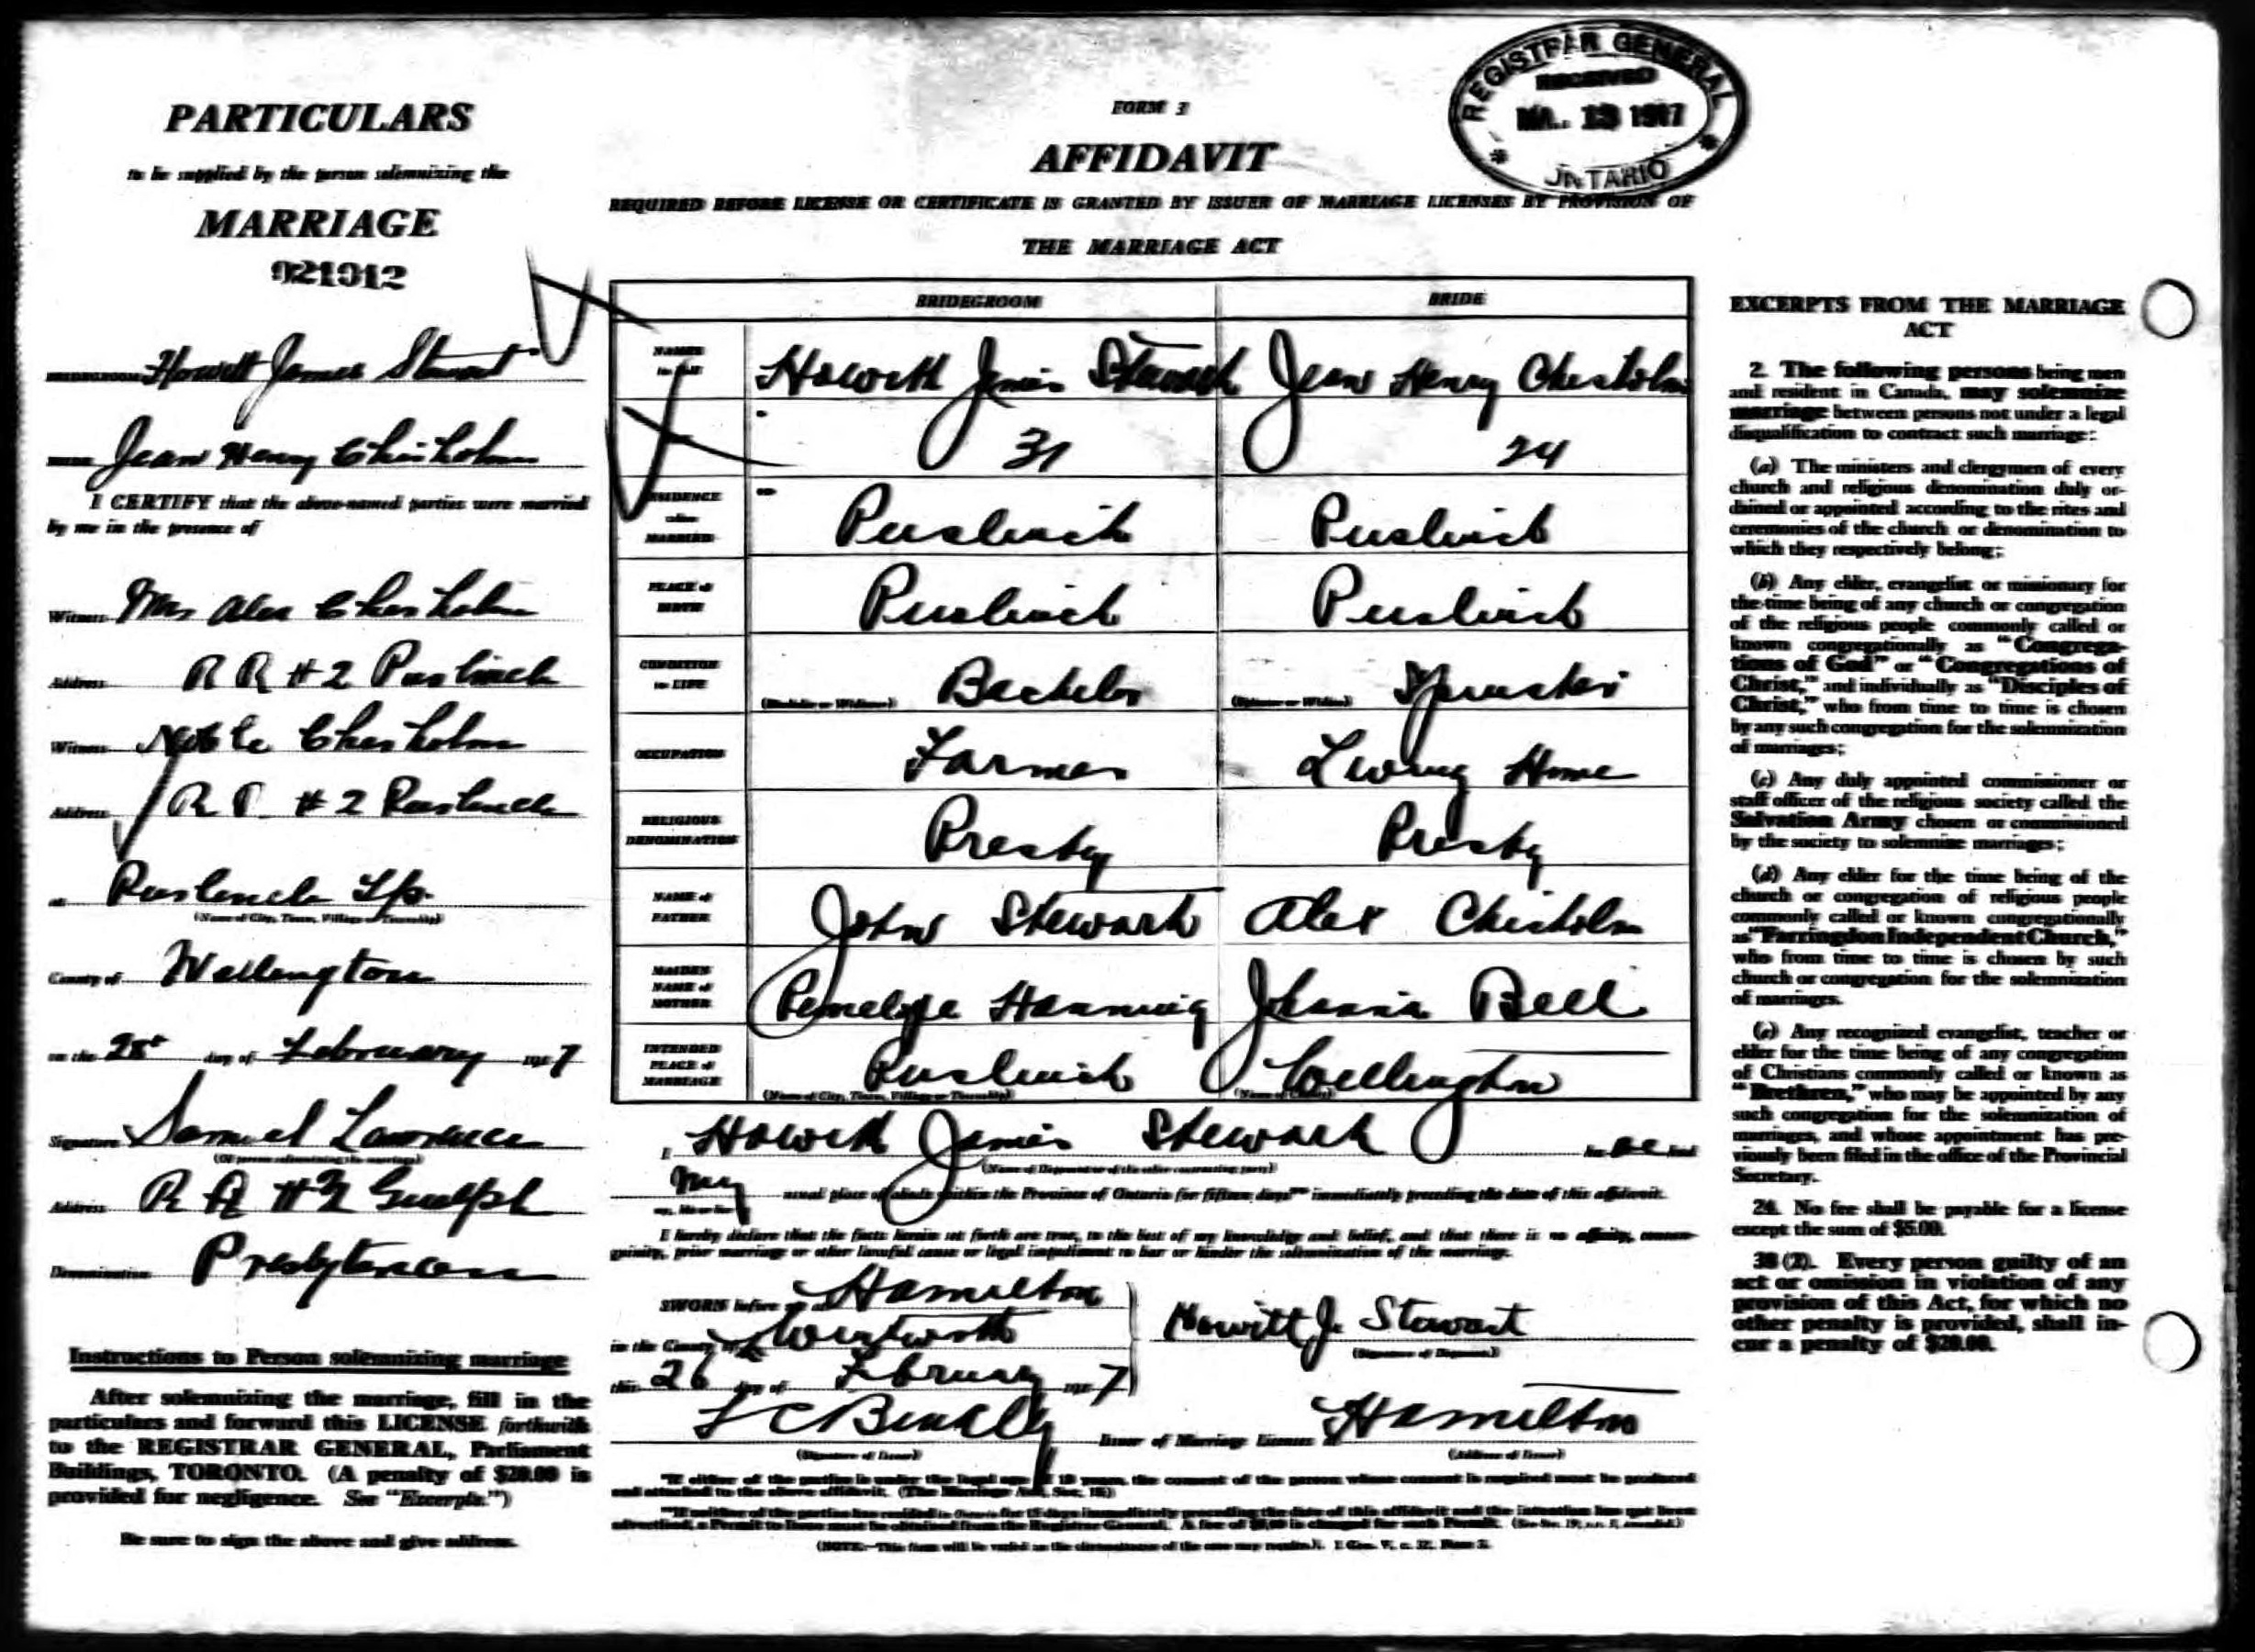 PARTICULARS
to be supplied by the person solemnizing the
MARRIAGE
021912
BRIDEGROOM Howitt James Stewart
BRIDE Jean Henry Chisholm
I CERTIFY that the above-named parties were married
by me in the presence of
Witness Mrs Alex Chisholm
Address R R #2 Puslinch
Witness Noble Chisholm
Address R R #2 Puslinch
at Puslinch Tp.
(Name of City, Town, Village or Township)
County of Wellington
on the 28th day of February 1927
Signature Samuel Lawrence
(Of person solemnizing the marriage)
Address R R #2 Guelph
Denomination Presbyterian
Instructions to Person solemnizing marriage
After solemnizing the marriage, fill in the
particulars and forward this LICENSE forthwith
to the REGISTRAR GENERAL, Parliament
Buildings, TORONTO. (A penalty of $20.00 is
provided for negligence. See "Excerpts.")
Be sure to sign the above and give address.
FORM 3
AFFIDAVIT
REQUIRED BEFORE LICENSE OR CERTIFICATE IS GRANTED BY ISSUER OF MARRIAGE LICENSES BY PROVISION OF
THE MARRIAGE ACT
REGISTRAR GENERAL
RECEIVED
13
ONTARIO
BRIDEGROOM BRIDE
NAMES in full Howitt James Stewart Jean Henry Chisholm
31 24
RESIDENCE when MARRIED Puslinch Puslinch
PLACE of BIRTH Puslinch Puslinch
CONDITION in LIFE (Bachelor or Widower) Bachelor (Spinster or Widow) Spinster
OCCUPATION Farmer Living Home
RELIGIOUS DENOMINATION Presby Presby
NAME of FATHER John Stewart Alex Chisholm
MAIDEN NAME of MOTHER Penelope Hanning Bell
INTENDED PLACE of MARRIAGE Puslinch Wellington
(Name of City, Town, Village or Township) (Name of County)
I Howitt James Stewart
(Name of Deponent or of the other contracting party)
my usual place of abode within the Province of Ontario for fifteen days** immediately preceding the date of this affidavit.
I hereby declare that the facts herein set forth are true, to the best of my knowledge and belief, and that there is no affinity, consan-
guinity, prior marriage or other lawful cause or legal impediment to bar or hinder the solemnization of the marriage.
SWORN before me at Hamilton
in the County of Wentworth
this 26 day of February 1927
Howitt J. Stewart
(Signature of Deponent)
(Signature of Issuer)
Issuer of Marriage Licenses at Hamilton
(Address of Issuer)
*If either of the parties is under the legal age of 18 years, the consent of the person whose consent is required must be produced
and attached to the above affidavit. (The Marriage Act, Sec. 15)
**If neither of the parties has resided in Ontario for 15 days immediately preceding the date of this affidavit and the intention has not been
advertised, a Permit to Issue must be obtained from the Registrar General. A fee of is charged for such Permit.
(NOTE.—This form will be varied as the circumstances of the case may require.)
EXCERPTS FROM THE MARRIAGE
ACT
2. The following persons being men
and resident in Canada, may solemnize
marriage between persons not under a legal
disqualification to contract such marriage:
(a) The ministers and clergymen of every
church and religious denomination duly or-
dained or appointed according to the rites and
ceremonies of the church or denomination to
which they respectively belong;
(b) Any elder, evangelist or missionary for
the time being of any church or congregation
of the religious people commonly called or
known congregationally as "Congrega-
tions of God" or "Congregations of
Christ," and individually as "Disciples of
Christ," who from time to time is chosen
by any such congregation for the solemnization
of marriages;
(c) Any duly appointed commissioner or
staff officer of the religious society called the
Salvation Army chosen or commissioned
by the society to solemnize marriages;
(d) Any elder for the time being of the
church or congregation of religious people
commonly called or known congregationally
as "Farringdon Independent Church,"
who from time to time is chosen by such
church or congregation for the solemnization
of marriages.
(e) Any recognized evangelist, teacher or
elder for the time being of any congregation
of Christians commonly called or known as
"Brethren," who may be appointed by any
such congregation for the solemnization of
marriages, and whose appointment has pre-
viously been filed in the office of the Provincial
Secretary.
24. No fee shall be payable for a license
except the sum of $5.00.
38 (2). Every person guilty of an
act or omission in violation of any
provision of this Act, for which no
other penalty is provided, shall in-
cur a penalty of $20.00.